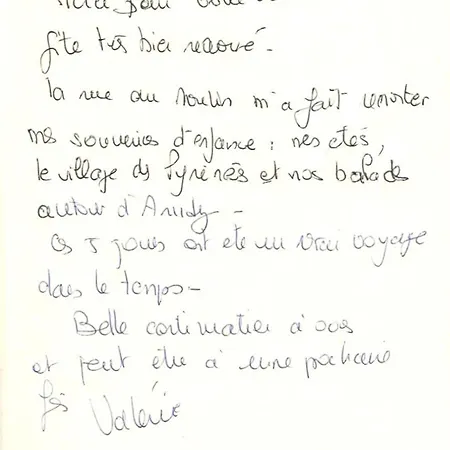 Merci pour votre
gîte très bien rénové.
la rue du Moulin m'a fait remonter
mes souvenirs d'enfance : mes étés,
le village des Pyrénées et nos balades
autour d'Arudy -
Ces 5 jours ont été un vrai voyage
dans le temps -
Belle continuation à vous
et peut être à une prochaine
fois Valérie